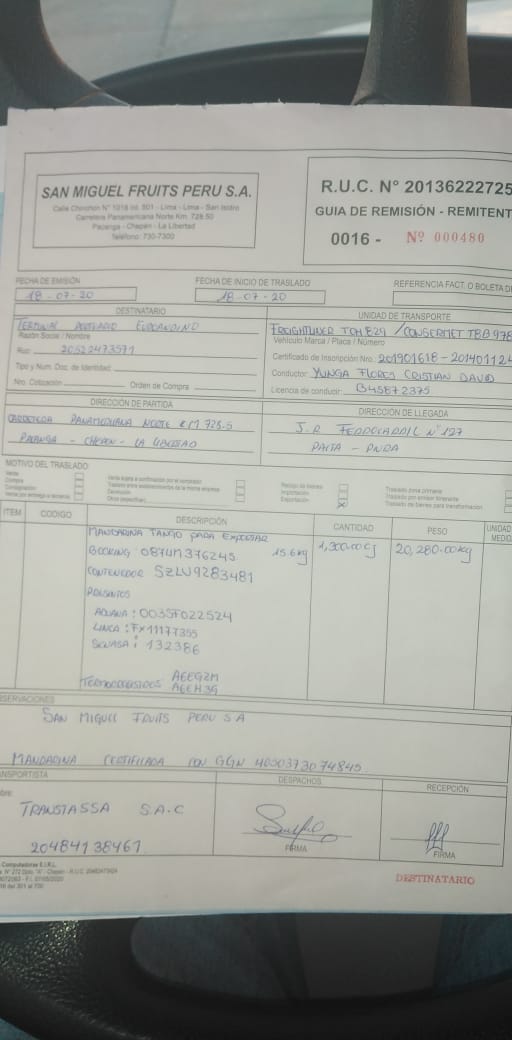 SAN MIGUEL FRUITS PERU S.A.
Calle Chinchon N° 1018 Int. 501 - Lima - Lima - San Isidro
Carretera Panamericana Norte Km. 728.50
Pacanga - Chepén - La Libertad
Teléfono: 730-7300
R.U.C. N° 20136222725
GUIA DE REMISIÓN - REMITENT
0016 - Nº 000480
FECHA DE EMISIÓN
18-07-20
FECHA DE INICIO DE TRASLADO
18-07-20
REFERENCIA FACT. O BOLETA D
DESTINATARIO
TERMINAL PORTUARIO EUROANDINO
Razón Social / Nombre
Ruc: 20522473571
Tipo y Num. Doc. de Identidad:
Nro. Cotización: Orden de Compra
UNIDAD DE TRANSPORTE
FREIGHTLINER / TBB978
Vehículo Marca / Placa / Número
Certificado de Inscripción Nro. 201901618 - 20140112
Conductor: YUNGA FLORES CRISTIAN DAVID
Licencia de conducir: B45872375
DIRECCIÓN DE PARTIDA
CARRETERA PANAMERICANA NORTE KM 728.5
PACANGA - CHEPEN - LA LIBERTAD
DIRECCIÓN DE LLEGADA
J.R FERROCARRIL N° 127
PAITA - PIURA
MOTIVO DEL TRASLADO
Venta
Compra
Consignación
Venta sujeta a confirmación por el comprador
Traslado entre establecimientos de la misma empresa
Devolución
Otros
Recojo de bienes
Importación
Exportación X
Traslado zona primaria
Traslado por emisor itinerante
Traslado de bienes para transformación
ITEM CODIGO DESCRIPCIÓN CANTIDAD PESO UNIDAD
MEDID
MANDARINA TANGO PARA EXPORTAR
BOOKING 087UM376245 15.6kg 1,300.00 CJ 20,280.00kg
CONTENEDOR SZLU9283481
PRESINTOS
ADUANA : 0035F022524
LINEA : FX11177355
SENASA : 132386
TERMOREGISTROS AEEGZM
AEEH3G
OBSERVACIONES
SAN MIGUEL FRUITS PERU S.A
MANDARINA CERTIFICADA CON GGN 4050373074845
TRANSPORTISTA
DESPACHOS
RECEPCIÓN
TRANSTASSA S.A.C
20484138461
FIRMA
FIRMA
DESTINATARIO